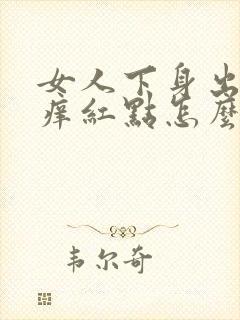 女人下身出
痒红點怎麼
韦尔奇